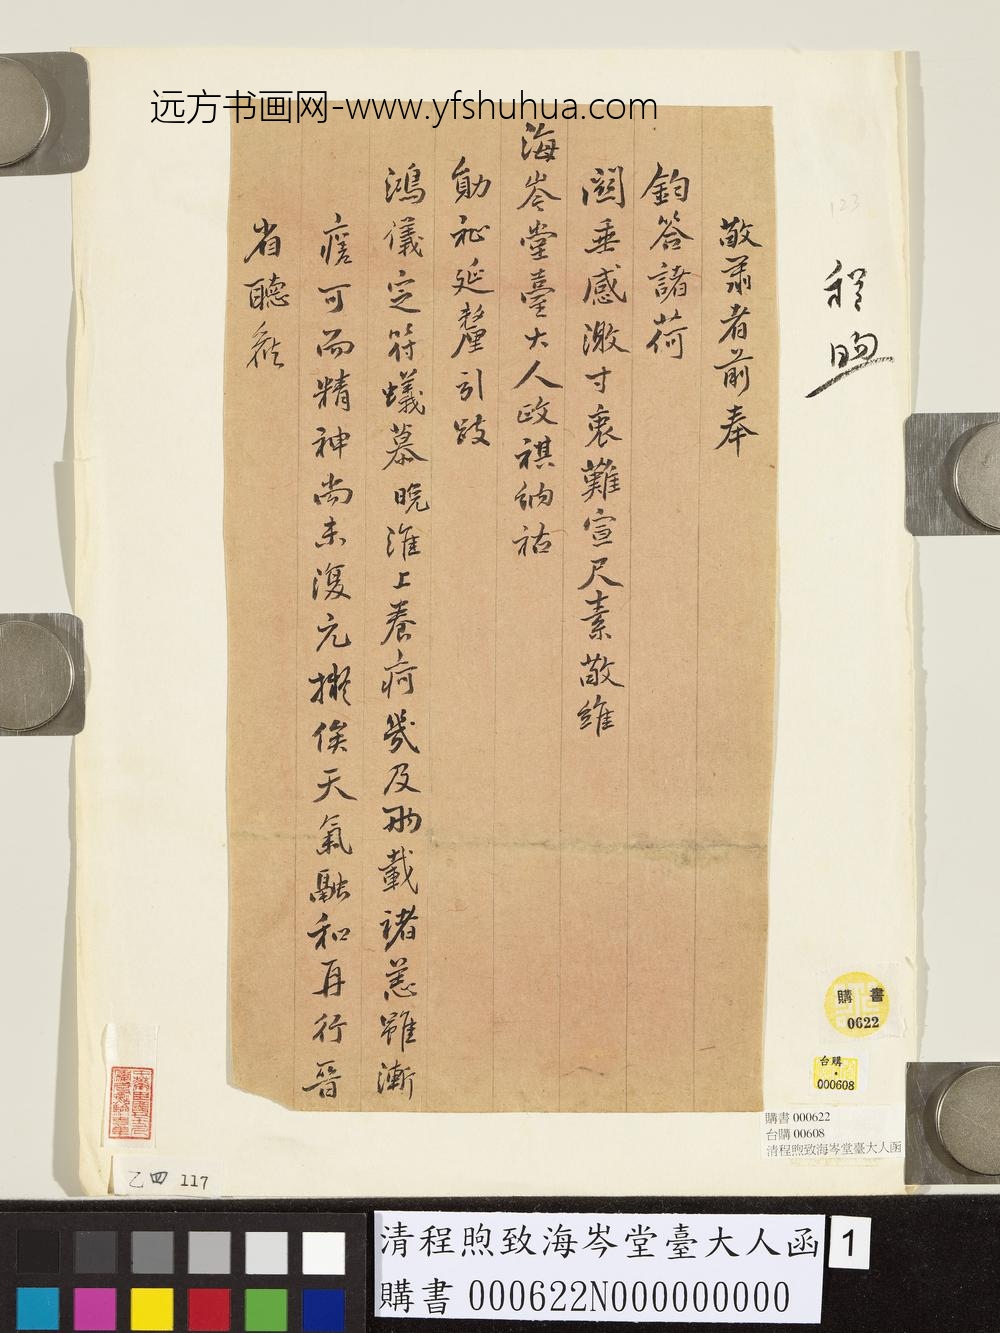 远方书画网-www.yfshuhua.com
123
程煦
敬肅者前奉
鈞答諸荷
關垂感激寸衷難宣尺素敬維
海岑堂臺大人政祺納祜
勛祉延釐引跂
鴻儀定符蟻慕晥淮上養疴幾及兩載諸恙雖漸
瘥可而精神尚未復元擬俟天氣融和再行晉
省聽
購書
0622
台購
000608
購書 000622
台購 00608
清程煦致海岑堂臺大人函
乙四 117
清程煦致海岑堂臺大人函
1
購書 000622N000000000